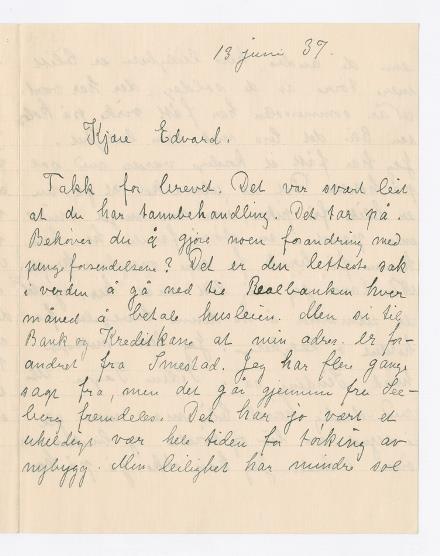 13 juni 37.
Kjære Edvard.
Takk for brevet. Det var svært leit
at du har tannbehandling. Det tar på.
Behøver du å gjøre noen forandring med
pengeforsendelsene? Det er den letteste sak
i verden å gå ned til Realbanken hver
måned å betale husleien. Men si til
Bank og Kreditkasse at min adres. er for-
andret fra Smestad. Jeg har flere gange
sagt fra, men det går gjennem fru See-
berg fremdeles. Det har jo vært et
uheldigt vær hele tiden for törking av
nybygg. Min leilighet har mindre sol